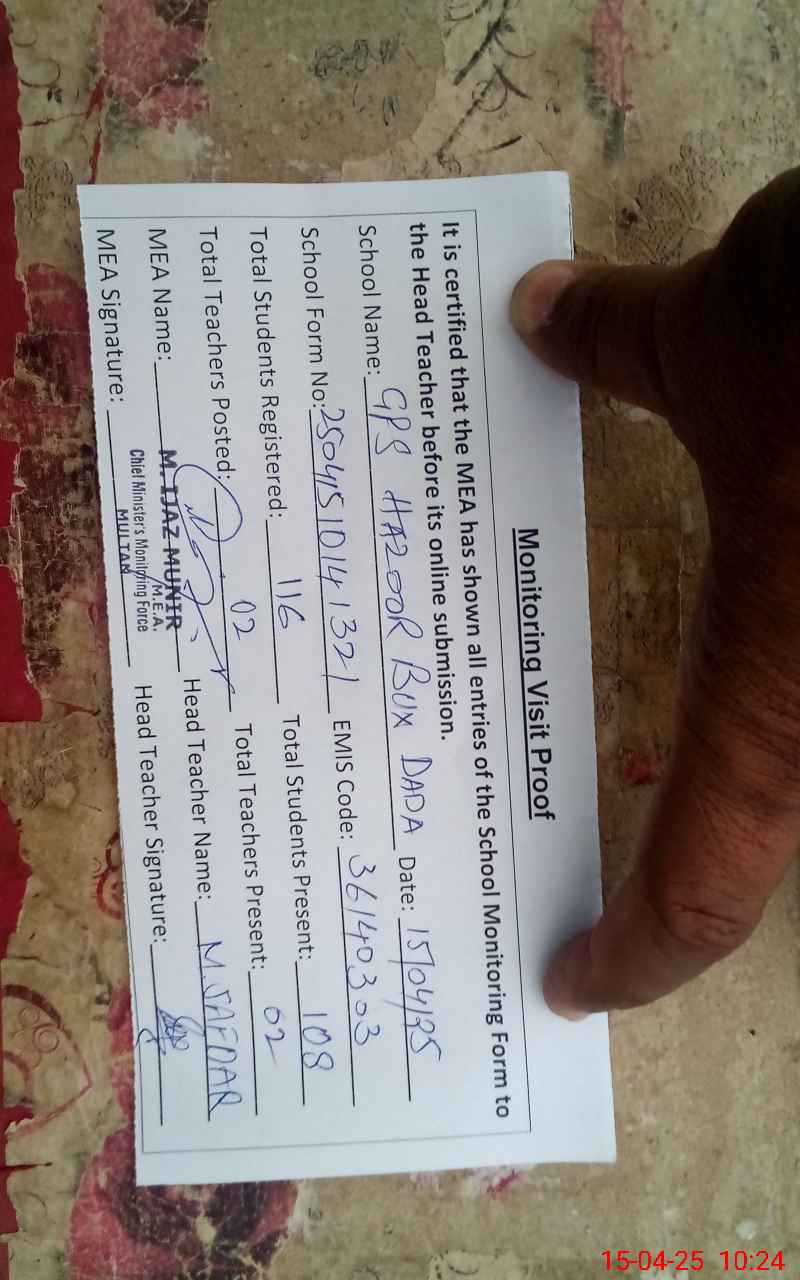 Monitoring Visit Proof
It is certified that the MEA has shown all entries of the School Monitoring Form to
the Head Teacher before its online submission.
School Name: GPS HAZOOR BUX DADA Date: 15/04/25
School Form No: 25041510141321 EMIS Code: 36140303
Total Students Registered: 116 Total Students Present: 108
Total Teachers Posted: 02 Total Teachers Present: 02
MEA Name: M. IJAZ MUNIR Head Teacher Name: M.SAFDAR
M.E.A.
MEA Signature: Chief Minister's Monitoring Force Head Teacher Signature:
MULTAN
15-04-25 10:24